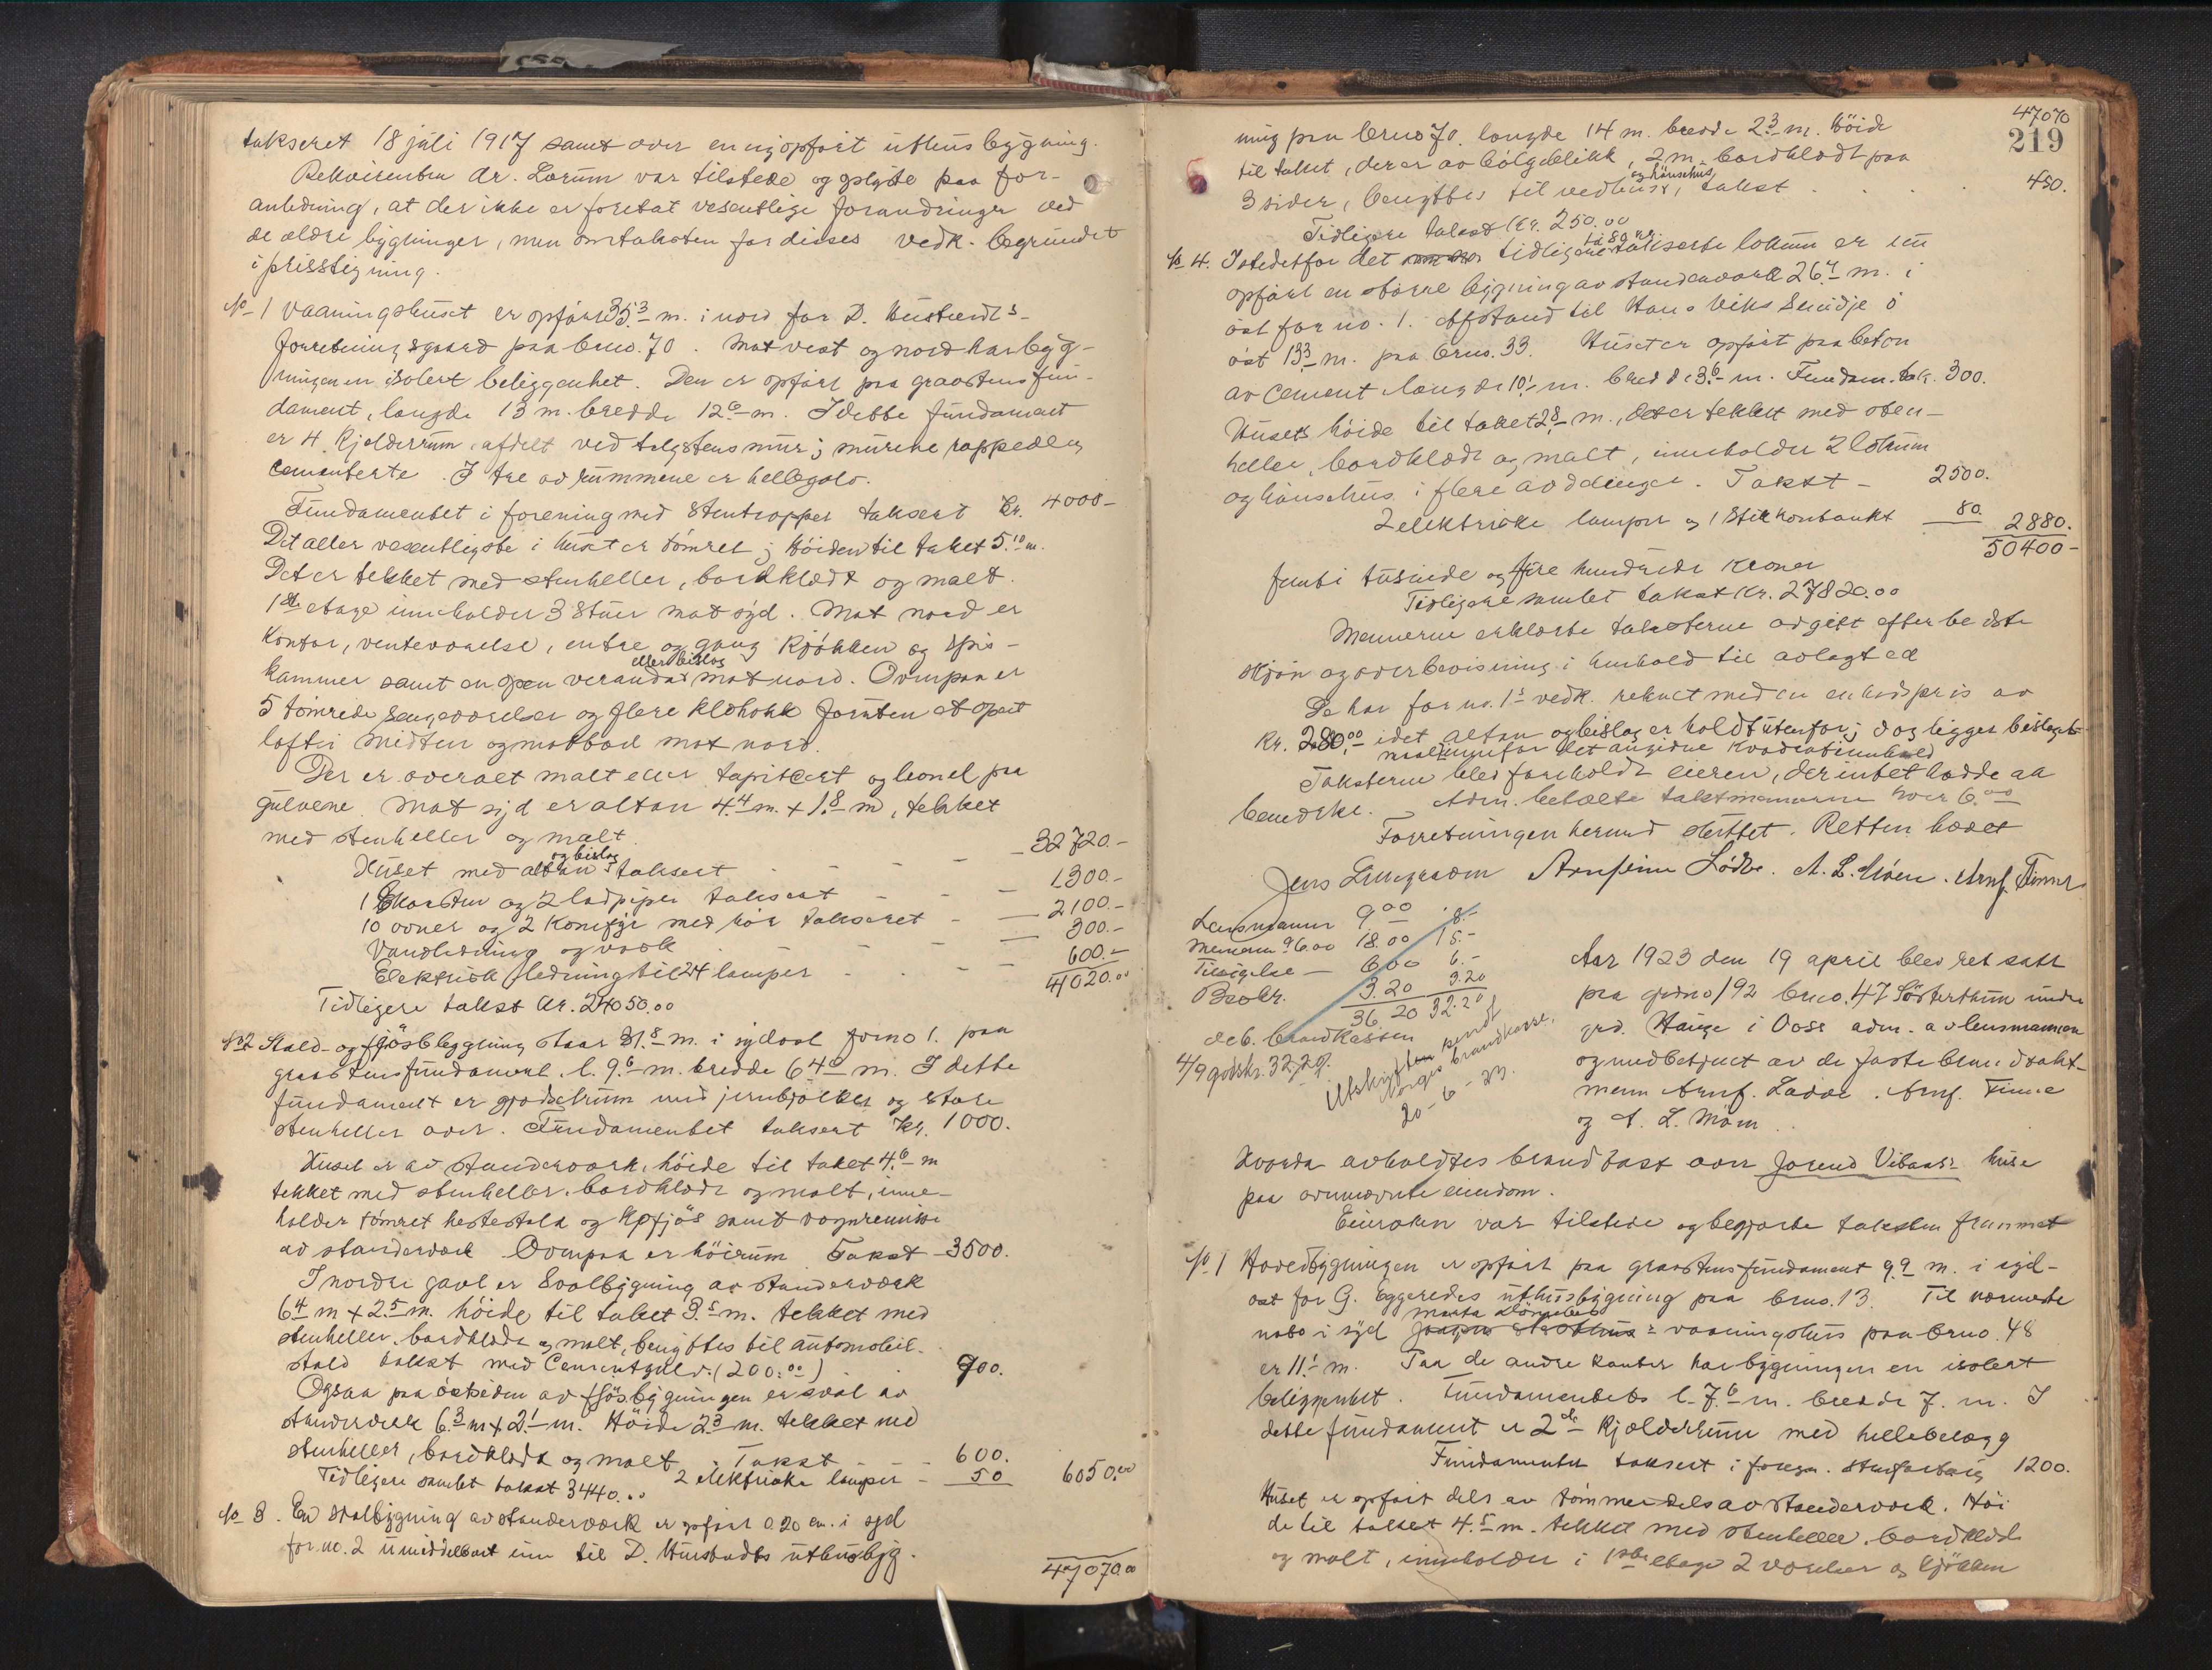 takseret 18 juli 1917 samt over en nyopført uthusbygning.
Rekvirenten dr. Lærum var tilstede og oplyste paa for-
anledning, at der ikke er foretat vesentlige forandringer ved
de ældre bygninger, men omtaksten for disses vedk. begrundet
i prisstigning.
No 1 Vaaningshuset er opført 35.3 m. i nord for D. Hustvedts
forretningsgaard paa bruno. 70. Mot vest og nord har byg-
ningen en isolert beliggenhet. Den er opført paa graastensfun-
dament, længde 13 m. bredde 12.6 m. I dette fundament
er 4 kjelderrum afdelt ved talgstensmur; murene rappede og
cementerte. I tre av rummene er hellegolv.
Fundamentet i forening med stentrapper taksert Kr. 4000-
Det aller vesentligste i huset er tømret; høiden til taket 5.10 m.
Det er tekket med stenheller, bordklædt og malt.
1ste etage inneholder 3 stuer mot syd. Mot nord er
kontor, venteværelse, entre og gang kjøkken og spis-
kammer samt en open veranda eller bislag mot nord. Ovenpaa er
5 tømrede soveværelser og flere klæskott foruten et opent
loft i midten og matbod mot nord.
Der er overalt malt eller tapitsert og linoel paa
gulvene. Mot syd er altan 4.4 m. x 1.8 m, tekket
med stenheller og malt.
Huset med altan og bislag taksert - - - 32720.-
1 skorsten og 2 lodpiper taksert - - 1300.-
10 ovner og 2 komfyr med rør takseret - 2100.-
Vandledning og vask - - - 300.-
Elektrisk ledning til 24 lamper - - - 600.-
41020.00
Tidligere takst kr. 24050.00
No 2 Stald- og fjøsbygning staar 31.8 m. i sydost for no 1. paa
graastensfundament. l. 9.6 m. bredde 6.40 m. I dette
fundament er gjødselrum med jernbjælker og store
stenheller over. Fundamentet taksert Kr. 1000.
Huset er av standerværk, høide til taket 4.6 m
tekket med stenheller, bordklædt og malt, inne-
holder tømret hestestald og kofjøs samt vognremisse
av standerværk. Ovenpaa er høirum. Takst - 3500.
I nordre gavl er svalbygning av standerværk
6.4 m x 2.5 m. høide til taket 3.5 m. tekket med
stenheller, bordklædt og malt, benyttes til automobil-
stald takst med Cementgulv. (200.00) 900.
Ogsaa paa østsiden av fjøsbygningen er sval av
standerværk 6.3 m x 2.1 m. Høide 2.3 m. tekket med
stenheller, bordklædt og malt. Takst - - 600.
Tidligere samlet takst 3440.00 2 elektriske lamper - 50 6050.00
No 3. En svalbygning av standerværk er opført 0.20 cm. i syd
for no. 2 umiddelbart inn til D. Hustvedts uthusbyg-
47070.00
47070
219
ning paa bruno 70. længde 14 m. bredde 2.3 m. Høide
til taket, der er av bølgeblikk, 2 m. bordklædt paa
3 sider, benyttes til vedhus og hønsehus, takst . . . 450.
Tidligere takst Kr. 250.00
No 4. Istedetfor det tidligere til 80 kr. takserte lokum er nu
opført en større bygning av standerværk 26.4 m. i
øst for no. 1. Afstand til Hans Viks Smidje i
øst 13.3 m. paa bruno. 33. Huset er opført paa beton
av cement længde 10.1 m. bredde 3.6 m. Fundam. tak. 300.
Husets høide til taket 2.8 m., det er tekket med sten-
heller, bordklædt og malt, inneholder 2 lokum
og hønsehus i flere avdelinger. Takst - 2500.
2 elektriske lamper og 1 stikkontankt 80. 2880.
50400-
femti tusinde og fire hundrede kroner
Tidligere samlet takst Kr. 27820.00
Mennerne erklærte taksterne avgitt efter bedste
skjøn og overbevisning i henhold til avlagt ed
De har for no. 1s vedk. reknet med en enhedspris av
Kr. 280.00 idet altan og bislag er holdt utenfor; dog ligger bislagets
maal innenfor det angivne kvadratinnhold
Taksterne blev foreholdt eieren, der intet hadde at
bemerke. Adm. betalte takstmennerne hver 6.00
Forretningen hermed sluttet. Retten hævet
Jens Lunggaarden Arnfinn Lødve. A. L. Møen. Arnf. Finne
Lensmann 9.00 8.-
Mennene a 6.00 18.00 15.-
Tilsigelse - 6.00 6.-
Beskr. 3.20 3.20
36.20 32.20
deb. brandkassen
4/9 godskr. 32.20.
Utskriften sendt
Norges brandkasse.
20-6-23.
Aar 1923 den 19 april blev ret satt
paa grdno 192 bruno. 47 under
grd. Hauge i Voss adm. av lensmannen
og medbetjent av de faste branndtakst-
menn Arnf. Lødve. Arnf. Finne
og A. L. Møen.
Hvorda avholdtes brandtakst over Jorend Vibaas's huse
paa ovennevnte eiendom.
Eiersken var tilstede og begjærte taksten fremmet
No 1 Hovedbygningen er opført paa graastensfundament 9.2 m. i syd-
ost for G. Eggeredes uthusbygning paa bruno. 13. Til nærmeste
nabo i syd Marta vaaningshus paa bruno. 48
er 11.1 m. Paa de andre kanter har bygningen en isolert
beliggenhet. Fundamentets l. 7.6 m. bredde 7. m. I
dette fundament er 2de kjelderrum med hellebelægg
Fundamentet taksert i foregn. 1200.
Huset er opført dels av tømmer dels av standerværk. Høi-
de til taket 4.5 m. tekket med stenheller. bordklædt
og malt, inneholder i 1ste etage 2 værelser og kjøkken